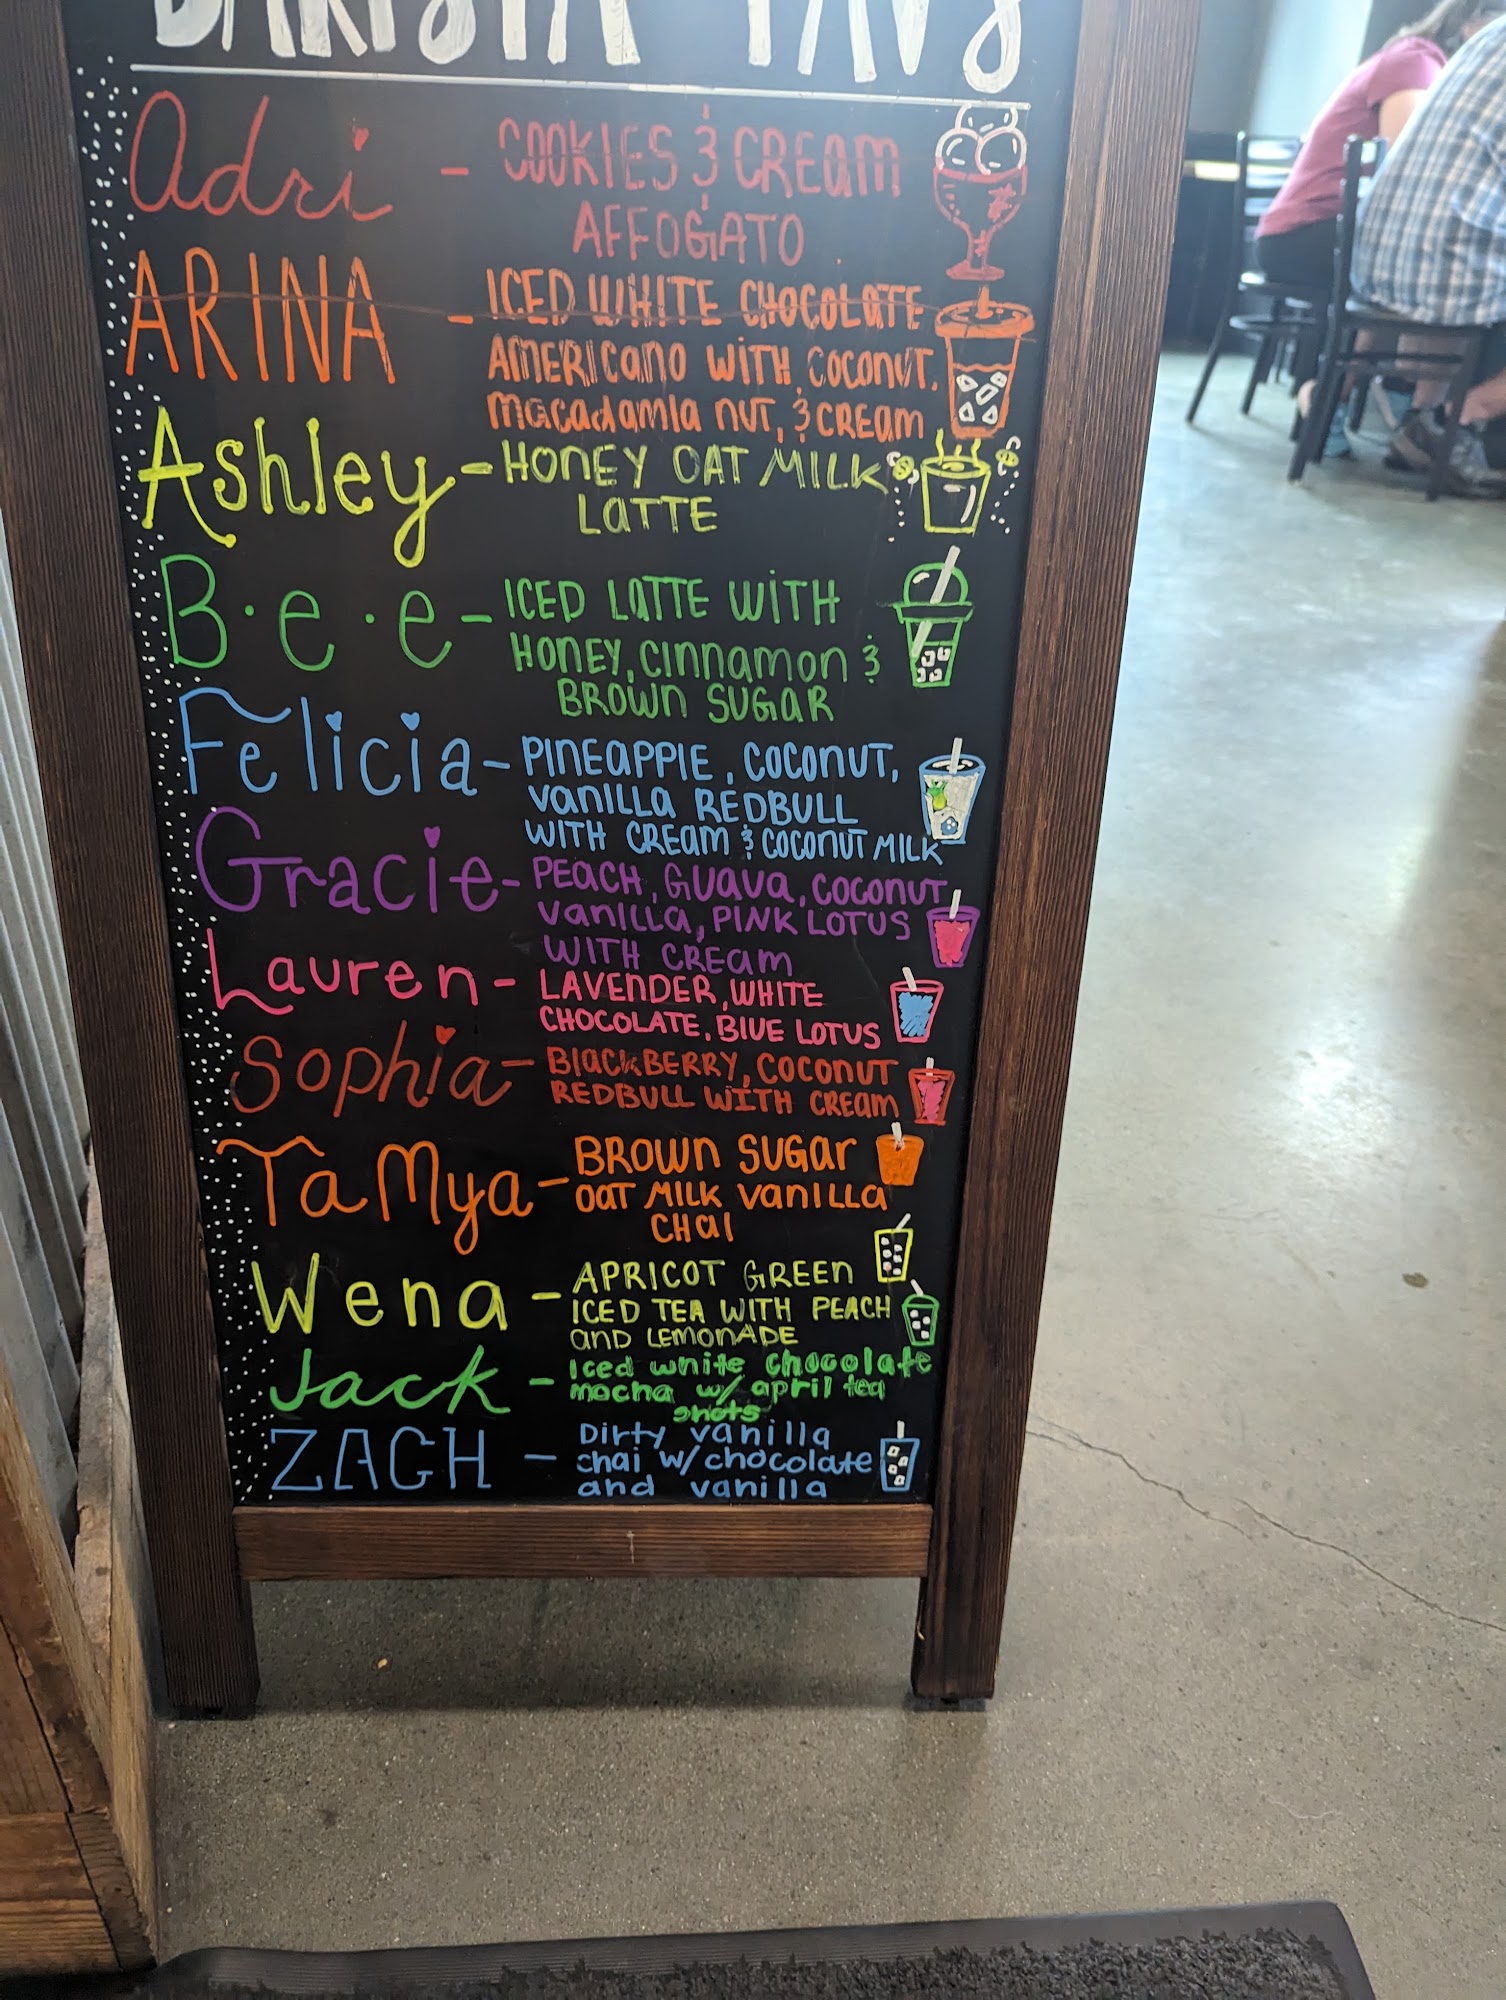 BARISTA FAVS
Adri - COOKIES & CREAM
AFFOGATO
ARINA - ICED WHITE CHOCOLATE
AMERICANO WITH COCONUT,
MACADAMIA NUT, & CREAM
Ashley - HONEY OAT MILK
LATTE
B·e·e - ICED LATTE WITH
HONEY, CINNAMON &
BROWN SUGAR
Felicia - PINEAPPLE, COCONUT,
VANILLA REDBULL
WITH CREAM & COCONUT MILK
Gracie - PEACH, GUAVA, COCONUT
VANILLA, PINK LOTUS
WITH CREAM
Lauren - LAVENDER, WHITE
CHOCOLATE, BLUE LOTUS
Sophia - BLACKBERRY, COCONUT
REDBULL WITH CREAM
TaMya - BROWN SUGAR
OAT MILK VANILLA
CHAI
Wena - APRICOT GREEN
ICED TEA WITH PEACH
AND LEMONADE
Jack - Iced white chocolate
mocha w/ april tea
shots
ZACH - Dirty vanilla
chai w/ chocolate
and vanilla